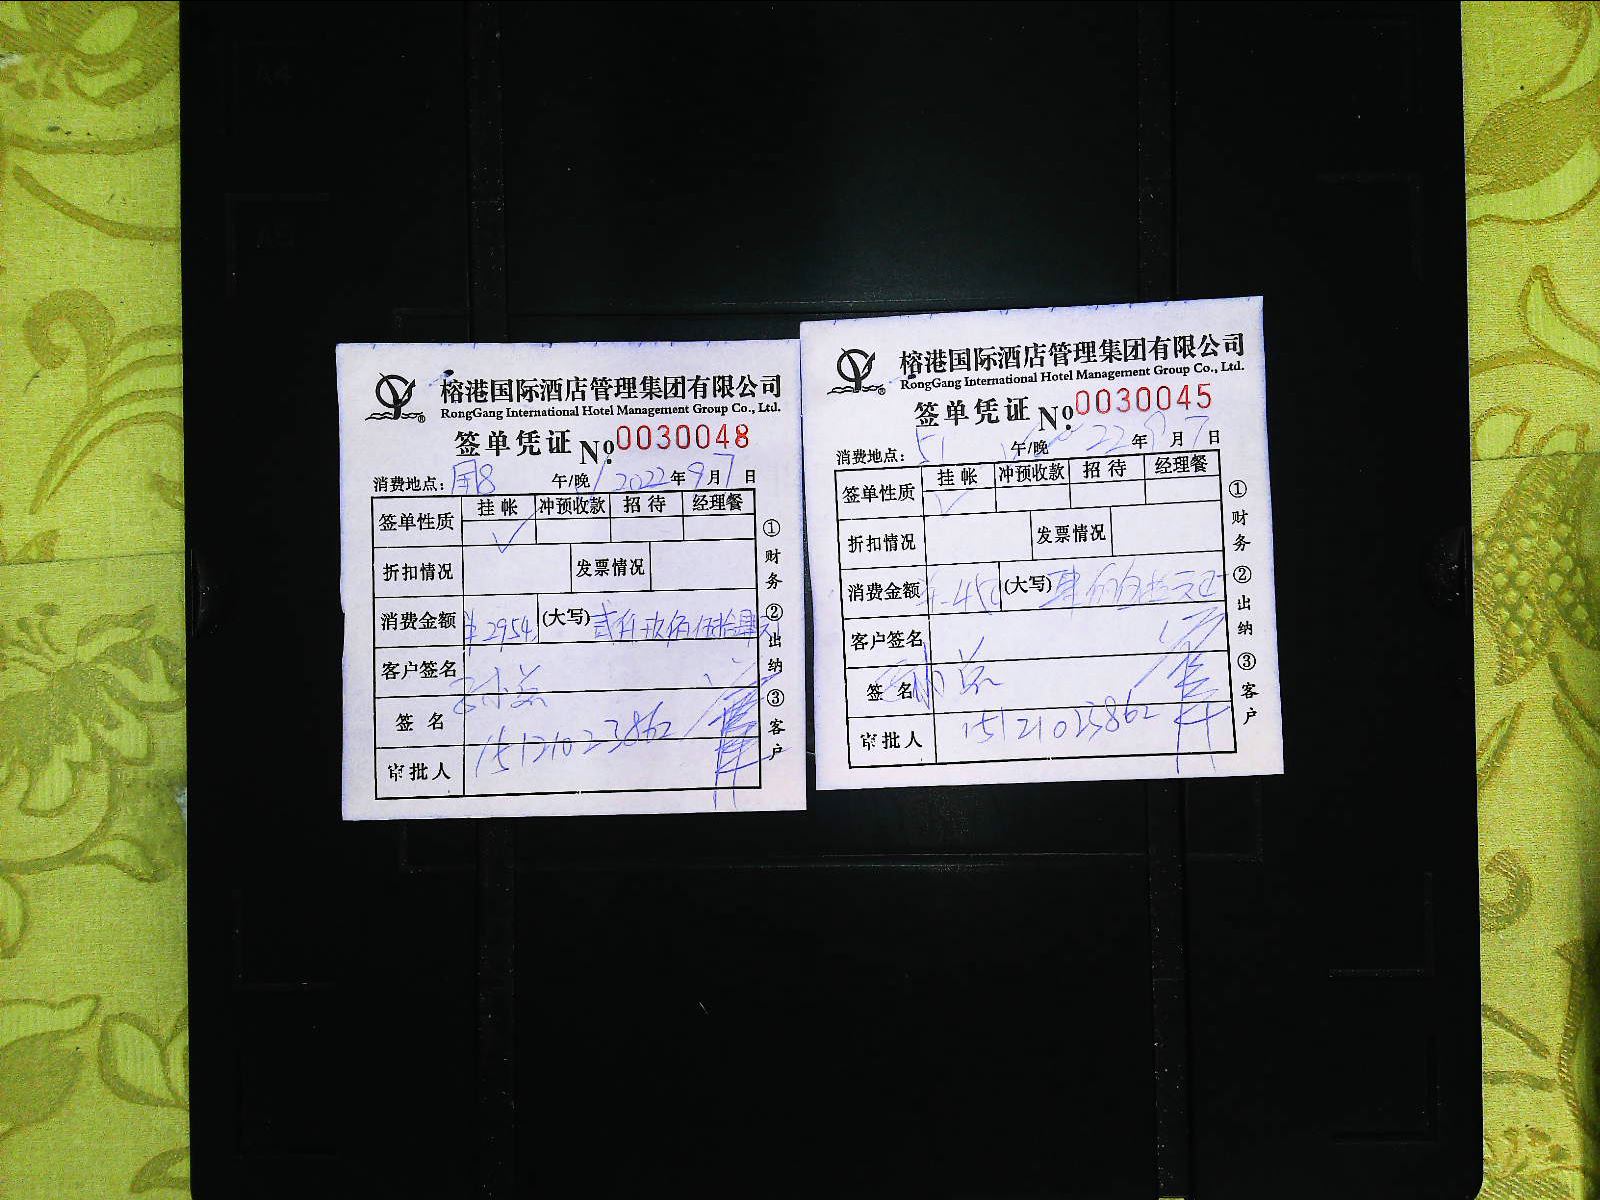 榕港国际酒店管理集团有限公司
RongGang International Hotel Management Group Co., Ltd.
签单凭证 No: 0030048
消费地点: 8 午/晚 2022年9月7日
签单性质 挂帐 冲预收款 招待 经理餐
✓
折扣情况 发票情况
消费金额 ¥2954 (大写) 贰仟玖佰伍拾肆元
客户签名
签名
15121023862
审批人
①财务 ②出纳 ③客户
榕港国际酒店管理集团有限公司
RongGang International Hotel Management Group Co., Ltd.
签单凭证 No: 0030045
消费地点: 51 午/晚 22年9月7日
签单性质 挂帐 冲预收款 招待 经理餐
✓
折扣情况 发票情况
消费金额 (大写)
客户签名
签名
15121023862
审批人
①财务 ②出纳 ③客户